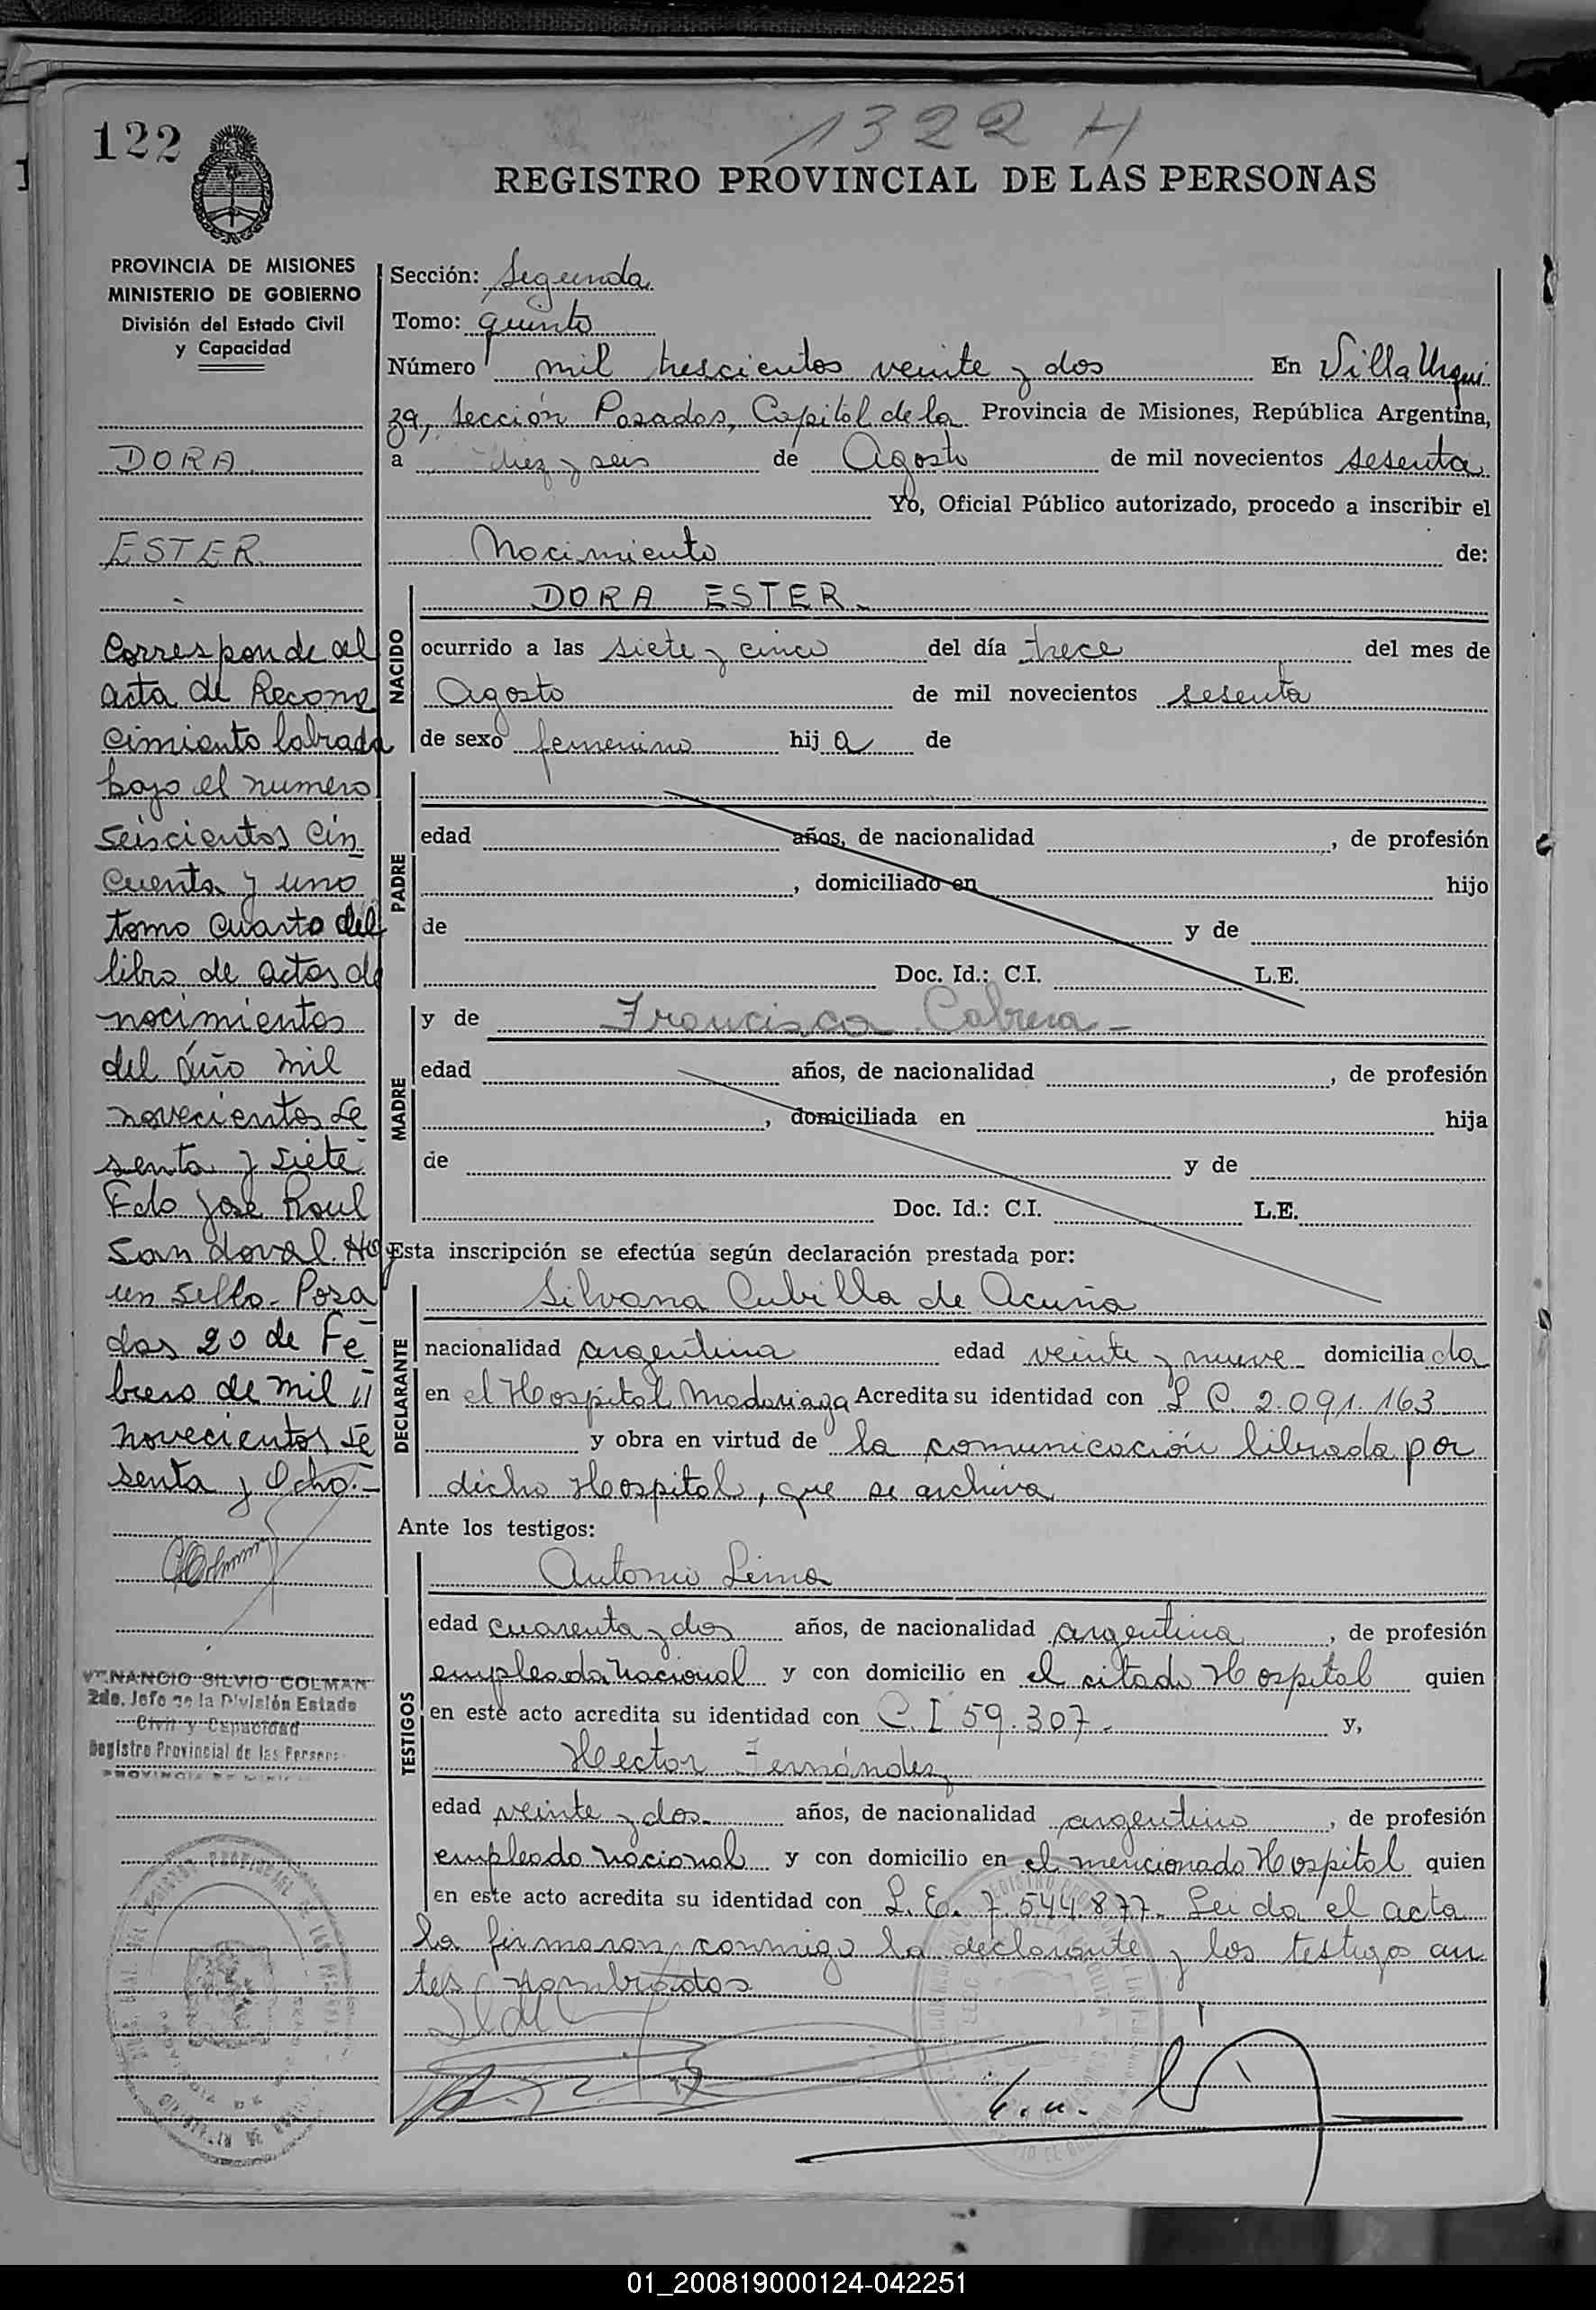 1322 H
122
REGISTRO PROVINCIAL DE LAS PERSONAS
PROVINCIA DE MISIONES
MINISTERIO DE GOBIERNO
División del Estado Civil
y Capacidad
DORA
ESTER
Corresponde al
acta de Recono
cimiento labrada
bajo el numero
seiscientos cin
cuenta y uno
tomo cuarto del
libro de actas de
nacimientos
del año mil
novecientos se
senta y siete
Fdo José Raul
Sandoval. Hay
un sello. Posa
das 20 de Fe
brero de mil
novecientos se
senta y Ocho.-
VENANCIO SILVIO COLMAN
2do. Jefe de la División Estado
Civil y Capacidad
Registro Provincial de las Persons
PROVINCIA DE
Sección: Segunda
Tomo: quinto
Número mil trescientos veinte y dos En Villa Urqui
za, Sección Posadas, Capital de la Provincia de Misiones, República Argentina,
a diez y seis de Agosto de mil novecientos sesenta
Yo, Oficial Público autorizado, procedo a inscribir el
Nacimiento de:
NACIDO
DORA ESTER.-
ocurrido a las siete y cinco del día trece del mes de
Agosto de mil novecientos sesenta
de sexo femenino hija de
PADRE
edad años, de nacionalidad , de profesión
, domiciliado en hijo
de y de
Doc. Id.: C.I. L.E.
MADRE
y de Francisca Cabrera -
edad años, de nacionalidad , de profesión
, domiciliada en hija
de y de
Doc. Id.: C.I. L.E.
Esta inscripción se efectúa según declaración prestada por:
DECLARANTE
Silvana Cubilla de Acuña
nacionalidad argentina edad veinte y nueve domiciliada
en el Hospital Madariaga Acredita su identidad con L C 2.091.163
y obra en virtud de la comunicación librada por
dicho Hospital, que se archiva
Ante los testigos:
TESTIGOS
Antonio Lima
edad cuarenta y dos años, de nacionalidad argentina, de profesión
empleada nacional y con domicilio en el sitado Hospital quien
en este acto acredita su identidad con C I 59.307.- y,
Hector Fernández
edad veinte y dos años, de nacionalidad argentino, de profesión
empleado nacional y con domicilio en el mencionado Hospital quien
en este acto acredita su identidad con L. E. 7.544.877. Leida el acta
la firmaron conmigo la declarante y los testigos an
tes nombrados
01_200819000124-042251